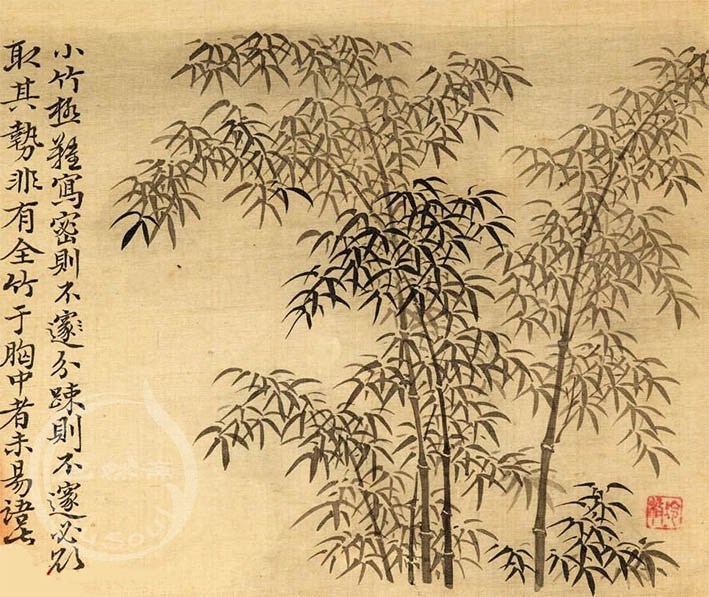 小竹極難寫密則不邃分踈則不邃必欲
取其勢非有全竹于胸中者未易語此